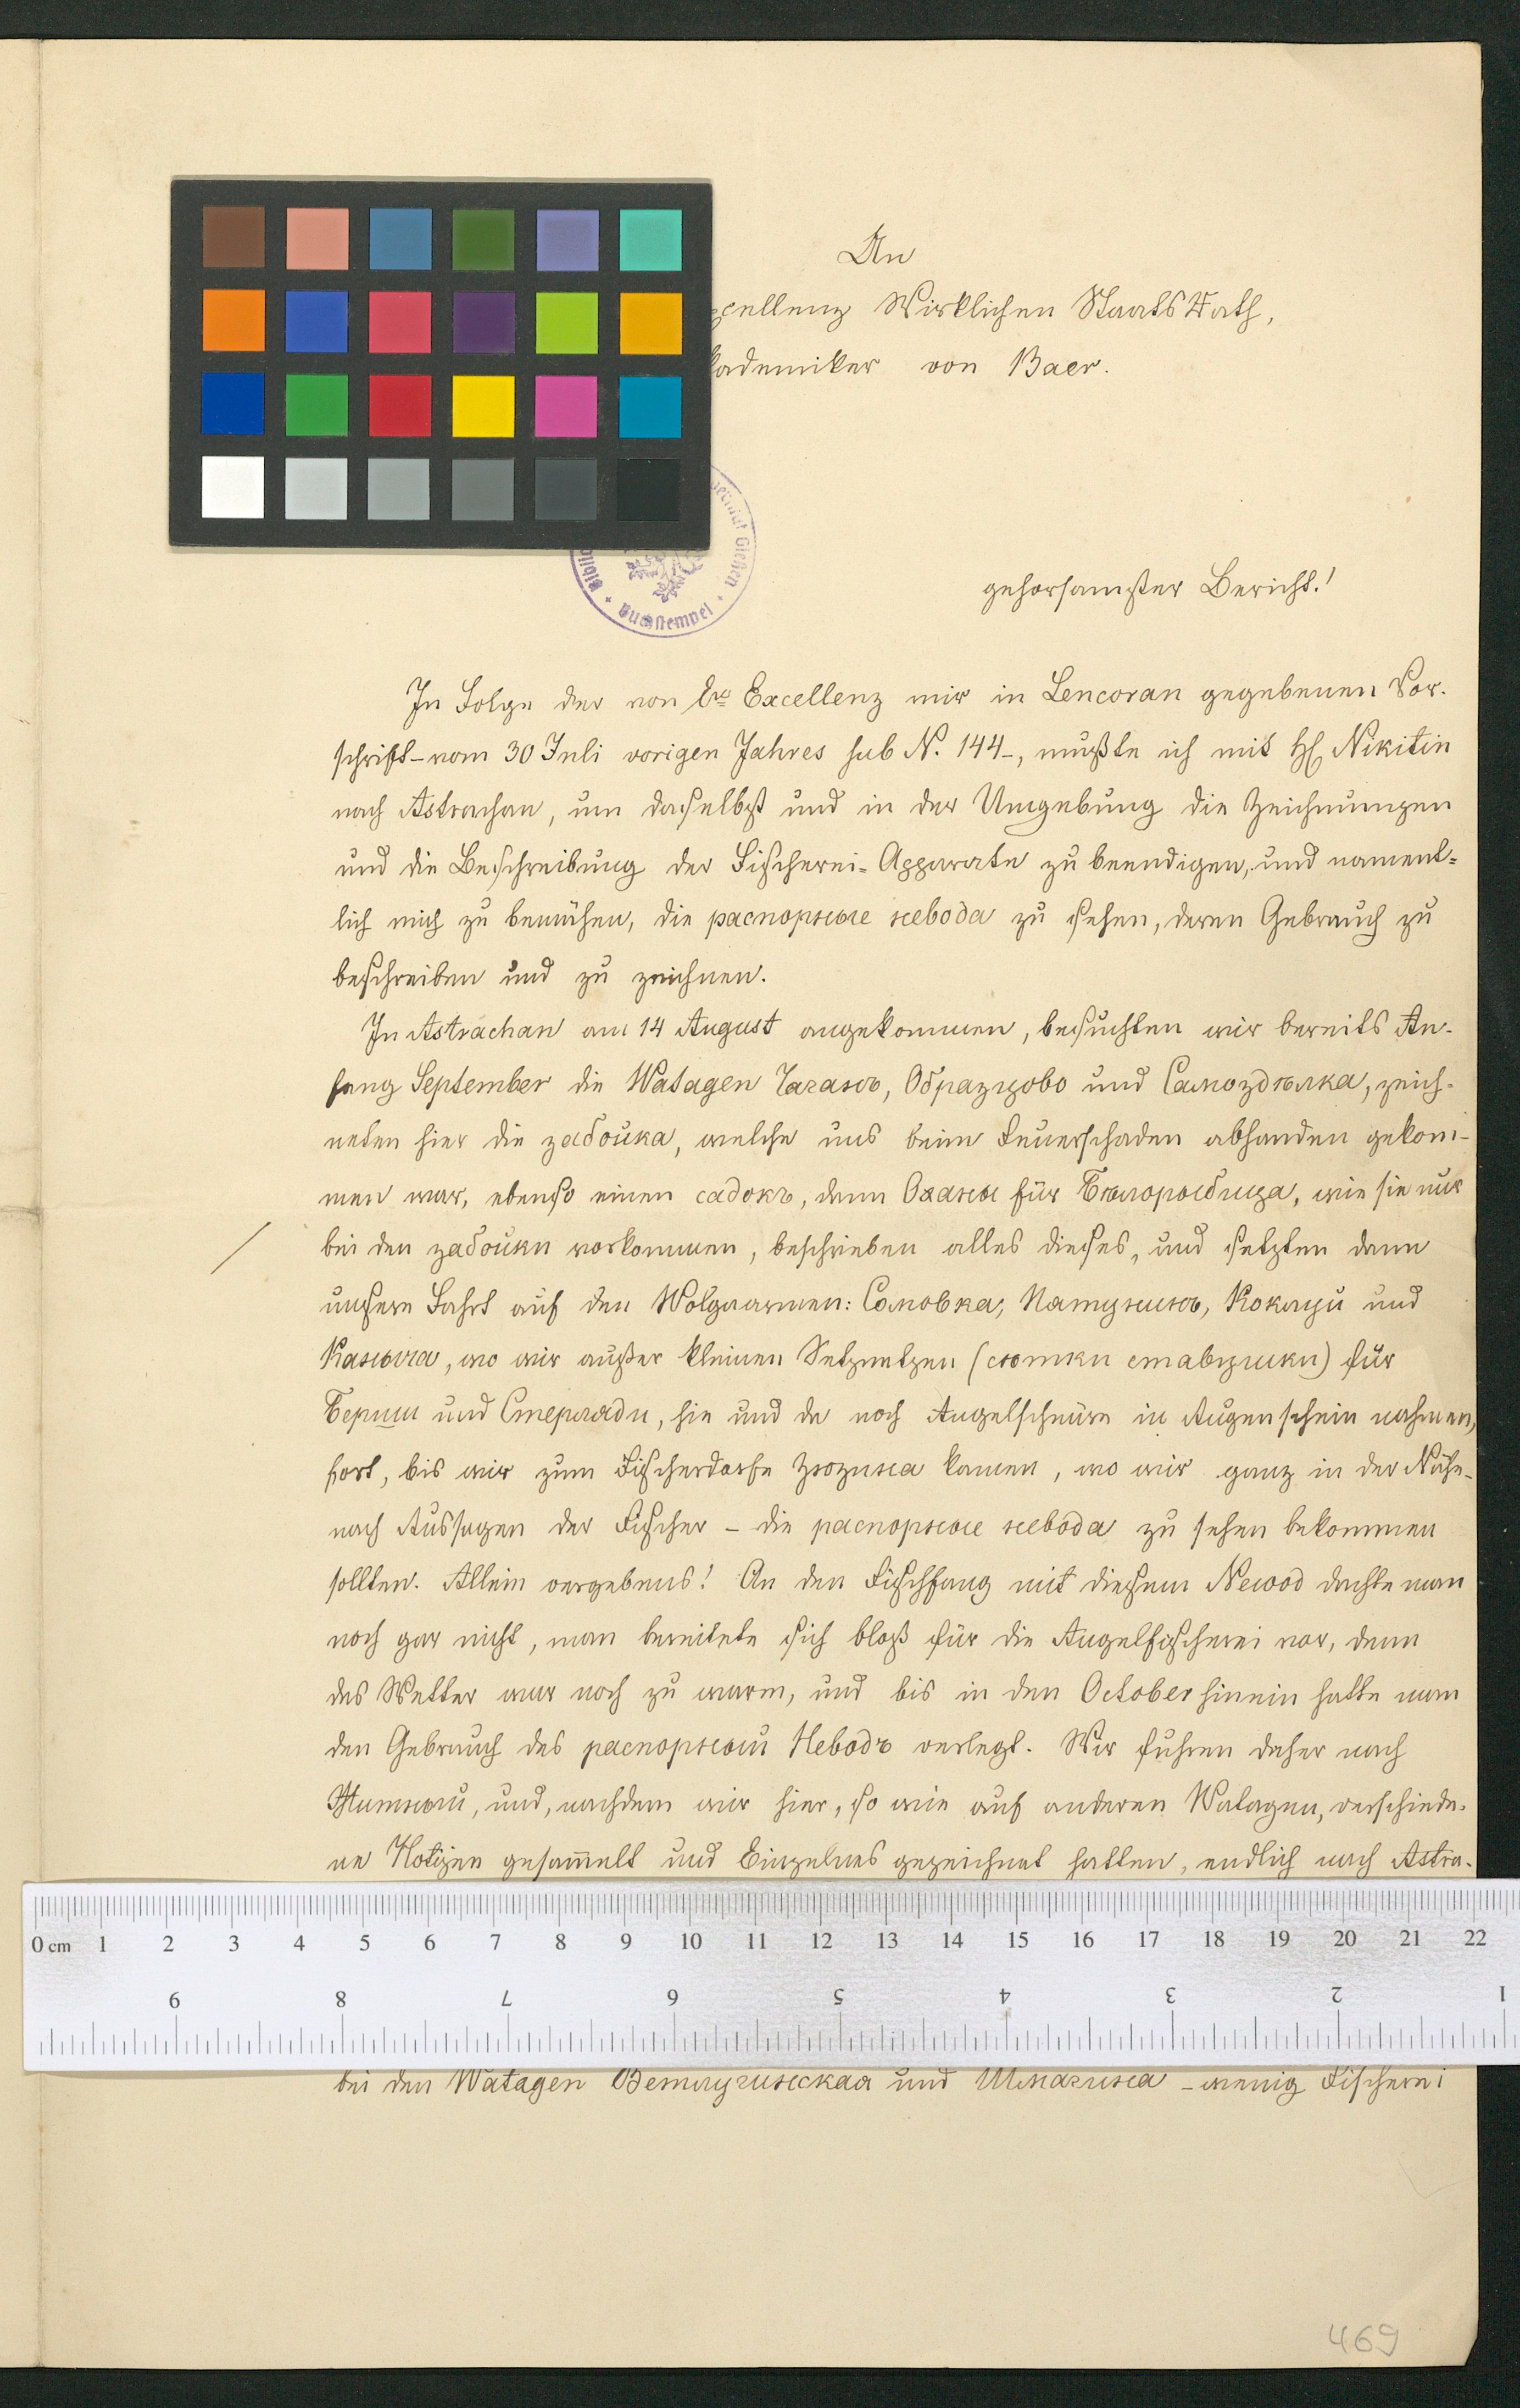 An
cellenz Wirklichen Staats Rath,
kademiker von Baer.
Buchstempel
gehorsamster Bericht!
In Folge der von Ew Excellenz mir in Lencoran gegebenen Vor-
schrift - vom 30 Juli vorigen Jahres sub N. 144 -, mußte ich mit H Nikitin
nach Astrachan, um daselbst und in der Umgebung die Zeichnungen
und die Beschreibung der Fischerei-Apparate zu beendigen, und nament-
lich mich zu bemühen, die распорные невода zu sehen, deren Gebrauch zu
beschreiben und zu zeichnen.
In Astrachan am 14 August angekommen, besuchten wir bereits An-
fang September die Watagen Чаганъ, Образцово und Самоздѣлка, zeich-
neten hier die забойка, welche uns beim Feuerschaden abhanden gekom-
men war, ebenso einen садокъ, dann Оханы für Бѣлорыбица, wie sie nur
bei den забойки vorkommen, beschrieben alles dieses, und setzten dann
unsere Fahrt auf den Wolgaarmen: Сомовка, Патушинъ, Коклуй und
Каныча, wo wir außer kleinen Setznetzen (сѣтки ставушки) für
Берши und Стерляди, hie und da noch Angelschnüre in Augenschein nahmen,
fort, bis wir zum Fischerdorfe Зюзина kamen, wo wir ganz in der Nähe -
nach Aussagen der Fischer - die распорные невода zu sehen bekommen
sollten. Allein vergebens! An den Fischfang mit diesem Newod dachte man
noch gar nicht, man bereitete sich bloß für die Angelfischerei vor, denn
das Wetter war noch zu warm, und bis in den October hinein hatte man
den Gebrauch des распорный Неводъ verlegt. Wir fuhren daher nach
Житный, und, nachdem wir hier, so wie auf anderen Watagen, verschiede-
ne Notizen gesam̅elt und Einzelnes gezeichnet hatten, endlich nach Astra-
0 cm 1 2 3 4 5 6 7 8 9 10 11 12 13 14 15 16 17 18 19 20 21 22
9 8 7 6 5 4 3 2 1
bei den Watagen Ветлугинская und Шмагина - wenig Fischerei
469